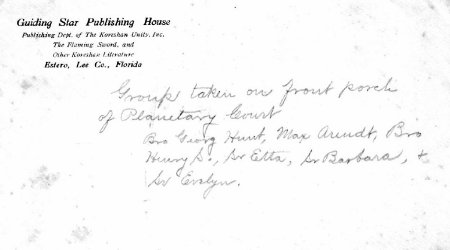 Guiding Star Publishing House
Publishing Dept. of The Koreshan Unity, Inc.
The Flaming Sword, and
Other Koreshan Literature
Estero, Lee Co., Florida
Group taken on front porch
of Planetary Court
Bro Georg Hunt, Max Arendt, Bro
Henry S., Sr Etta, Sr Barbara, &
Sr Evelyn.